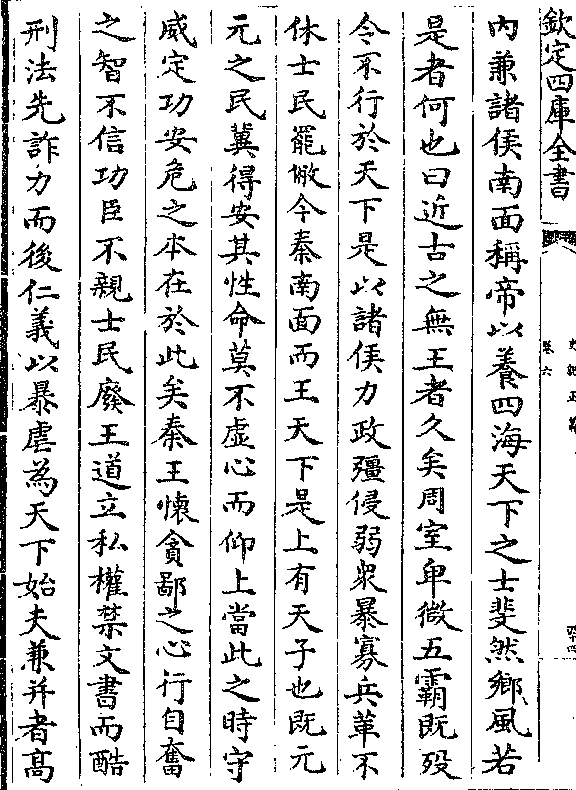 欽定四庫全書
卷六
內兼諸侯南面稱帝以養四海天下之士斐然鄉風若
是者何也曰近古之無王者久矣周室卑微五霸既歿
令不行於天下是以諸侯力政彊侵弱衆暴寡兵革不
休士民罷敝今秦南面而王天下是上有天子也既元
元之民冀得安其性命莫不虛心而仰上當此之時守
威定功安危之本在於此矣秦王懷貪鄙之心行自奮
之智不信功臣不親士民廢王道立私權禁文書而酷
刑法先詐力而後仁義以暴虐為天下始夫兼并者高